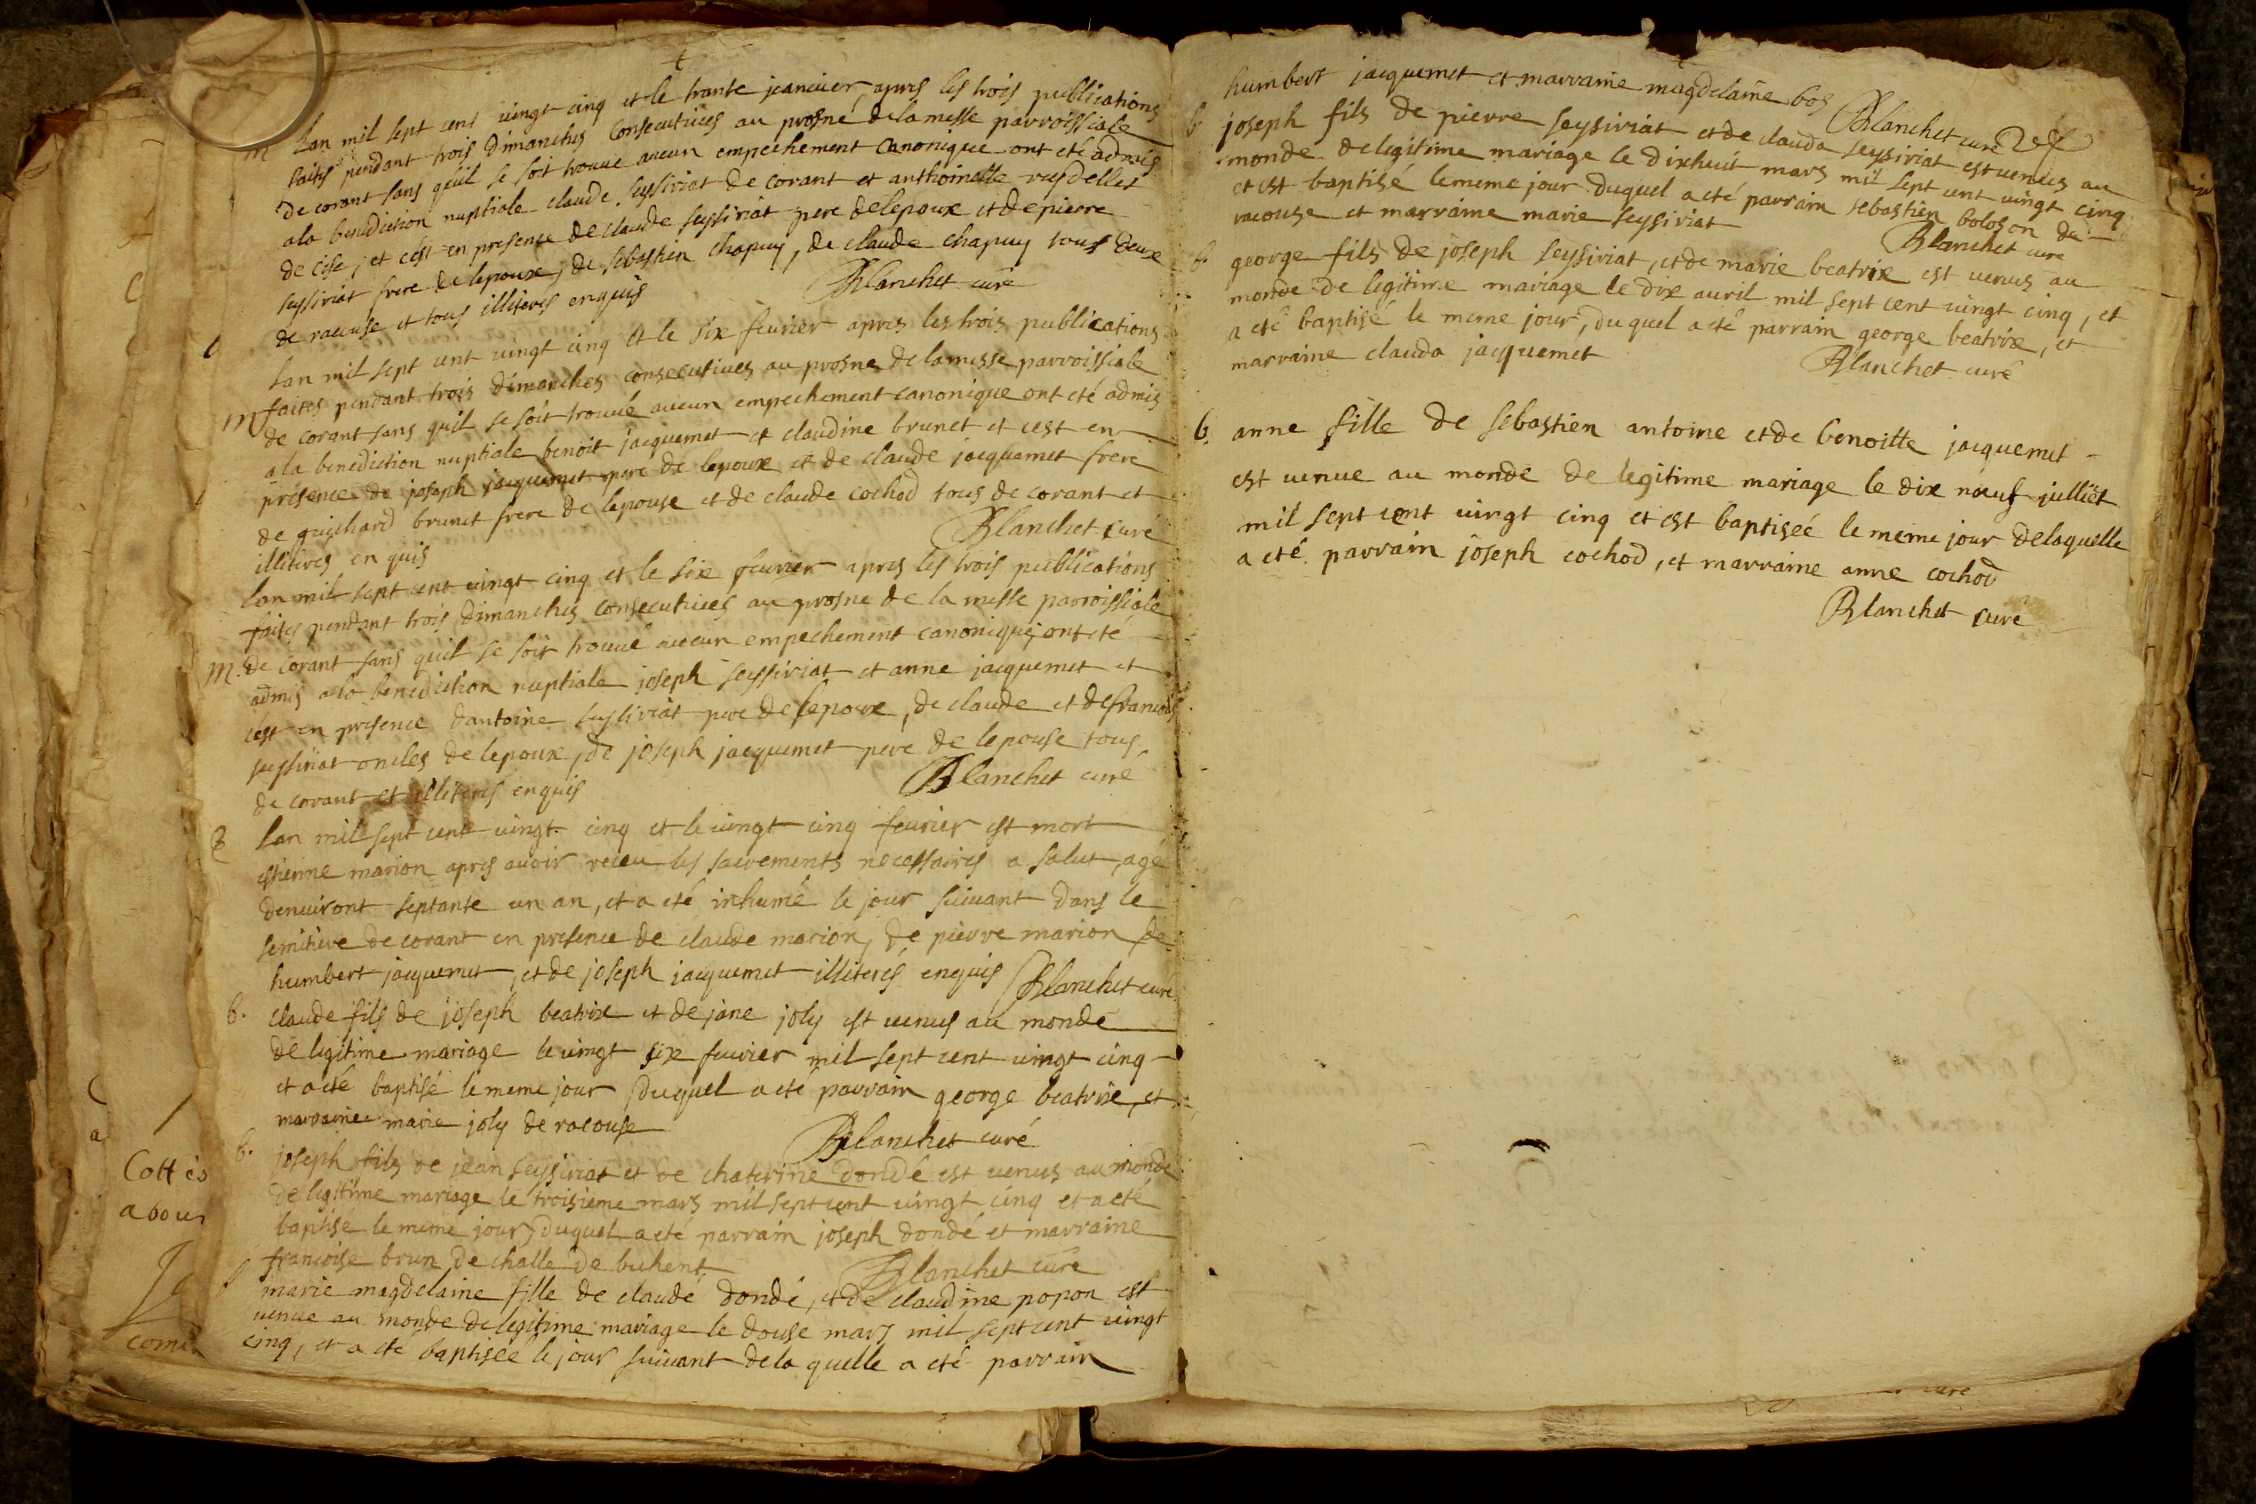 m lan mil sept cent vingt cinq et le trante jeanuier, apres les trois publications
faites pendant trois dimanches consecutives au prosne de la messe parroissiale
de corant sans quil se soit trouvé aucun empechement canonique ont eté admis
a la benediction nuptiale claude seyssiriat de corant et anthoinette
de cise, et cest en presence de claude seyssiriat pere de lepoux et de pierre
seyssiriat frere de lepoux, de sebastien chapuy, de claude chapuy tous deux
de racouse et tous illiteres enquis Blanchet curé
lan mil sept cent vingt cinq et le six feurier apres les trois publications
m faites pendant trois dimanches consecutives au prosne de la messe parroissiale
de corant sans quil se soit trouvé aucun empechement canonique ont eté admis
a la benediction nuptiale benoit jacquemet et claudine brunet et cest en
presence de joseph jacquemet pere de lepoux et de claude jacquemet frere
de guichard brunet frere de lepouse et de claude cochod tous de corant et
illiteres en quis Blanchet curé
lan mil sept cent vingt cinq et le six feurier apres les trois publications
faites pendant trois dimanches consecutives au prosne de la messe parroissiale
m. de corant sans quil se soit trouvé aucun empechement canonique ont eté
admis a la benediction nuptiale joseph seyssiriat et anne jacquemet et
cest en presence dantoine seyssiriat pere de lepoux, de claude et de francois
seyssiriat oncles de lepoux, de joseph jacquemet pere de lepouse tous
de corant et illiteres enquis Blanchet curé
lan mil sept cent vingt cinq et le vingt cinq feurier est mort
estienne marion apres avoir receu les sacrements necessaires a salut, agé
denuiront septante un an, et a eté inhumé le jour suivant dans le
semitiere de corant en presence de claude marion, de pierre marion de
humbert jacquemet, et de joseph jacquemet illiterés enquis Blanchet curé
b. claude fils de joseph beatrix et de jane joly est venus au monde
de legitime mariage le vingt six feurier mil sept cent vingt cinq
et a eté baptisé le meme jour, duquel a eté parrain george beatrix, et
marraine marie joly de racouse Blanchet curé
b. joseph fils de jean seysiriat et de chaterine dondé est venus au monde
de legitime mariage le troisieme mars mil sept cent vingt cinq et a eté
baptisé le meme jour, duquel a eté parrain joseph dondé et marraine
francoise brun de challe de buhent Blanchet curé
marie magdelaine fille de claude dondé, et de claudine popon est
venue au monde de legitime mariage le douse mars mil sept cent vingt
cinq, et a eté baptisée le jour suivant de la quelle a eté parrain
Cottes
abour
humbert jacquemet et marraine magdelaine bos Blanchet curé
b joseph fils de pierre seysiriat et de clauda seysiriat est venus au
monde de legitime mariage le dixhuit mars mil sept cent vingt cinq
et est baptisé le meme jour duquel a eté parrain sebastien boloson de
racouse et marraine marie seysiriat Blanchet curé
b. george fils de joseph seysiriat, et de marie beatrix est venus au
monde de legitime mariage le dix auril mil sept cent vingt cinq, et
a eté baptisé le meme jour, du quel a eté parrain george beatrix, et
marraine clauda jacquemet Blanchet curé
b. anne fille de sebastien antoine et de benoitte jacquemet
est venue au monde de legitime mariage le dix nœuf julliet
mil sept cent vingt cinq et est baptiseé le meme jour de laquelle
a eté parrain joseph cochod, et marraine anne cochod
Blanchet curé